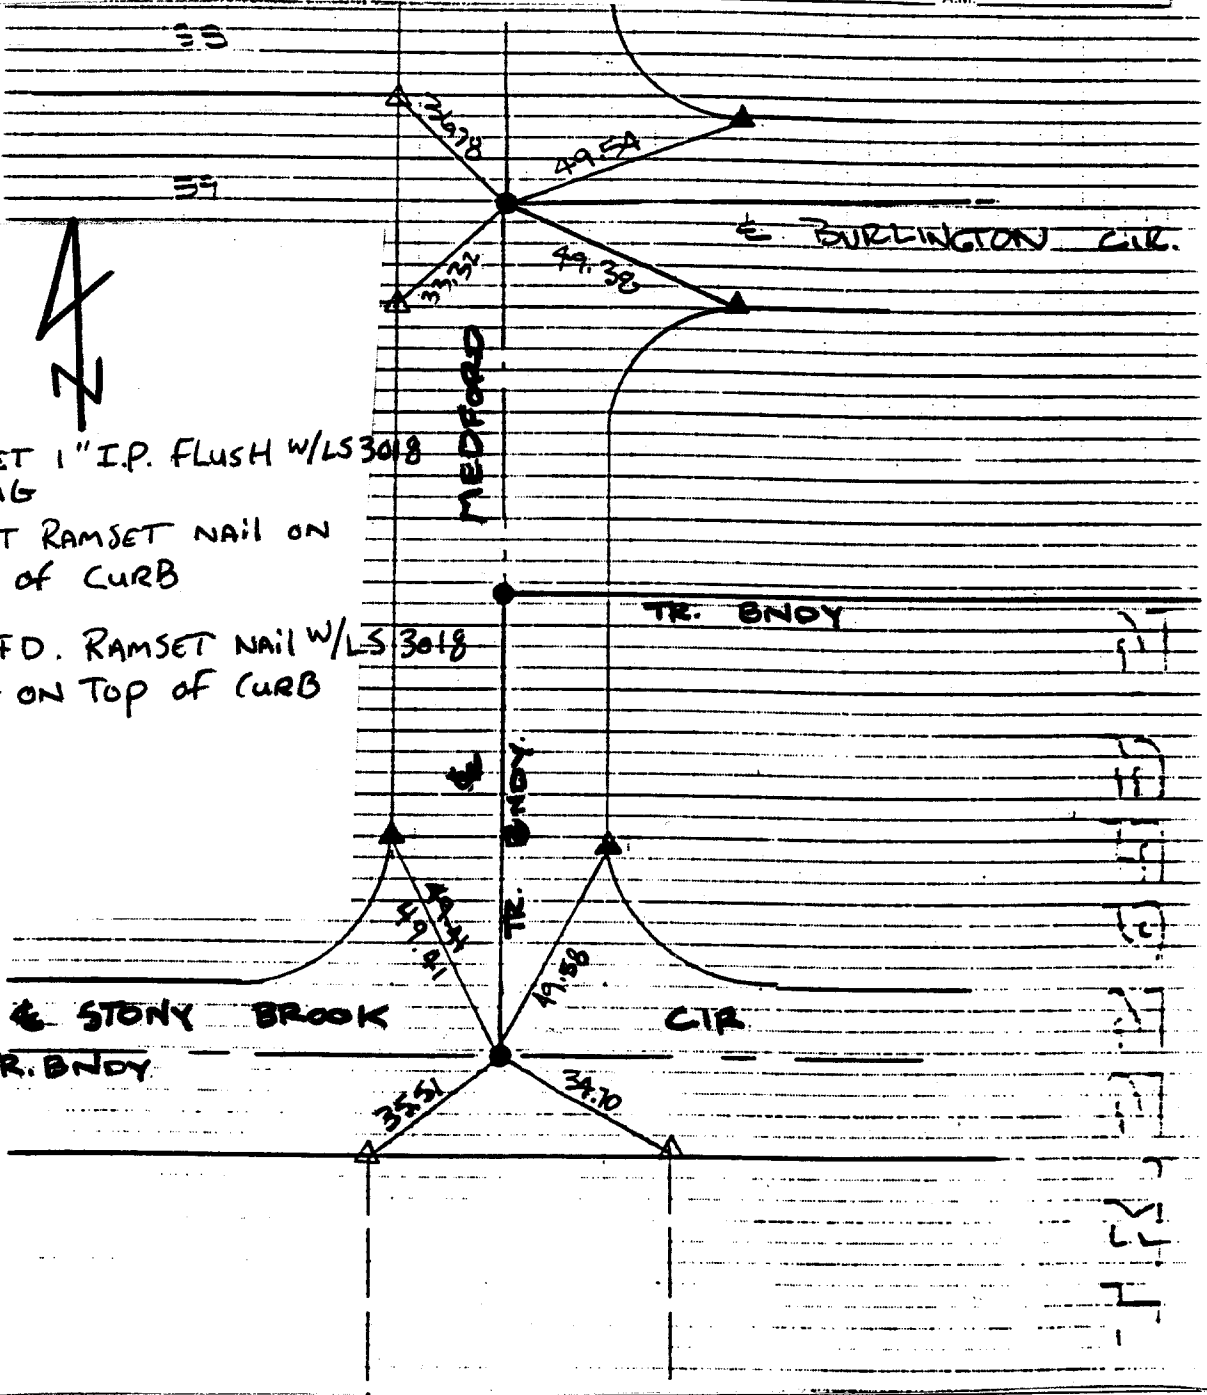 36.78
49.54
℄ BURLINGTON CIR.
33.32
49.38
MEDFORD
N
ET 1" I.P. FLUSH W/LS 3018
AG
T RAMSET NAIL ON
OF CURB
TR. BNDY
FD. RAMSET NAIL W/LS 3018
ON TOP OF CURB
℄
TR. BNDY.
49.41
49.58
℄ STONY BROOK CIR
R. BNDY
35.51
34.70